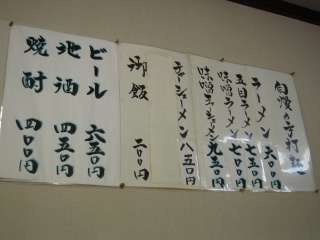 自慢の手打麺
ラーメン 六〇〇円
五目ラーメン 七五〇円
味噌ラーメン 七〇〇円
味噌チャーシューメン 九五〇円
チャーシューメン 八五〇円
御飯 二〇〇円
ビール 六五〇円
地酒 四五〇円
焼酎 四〇〇円